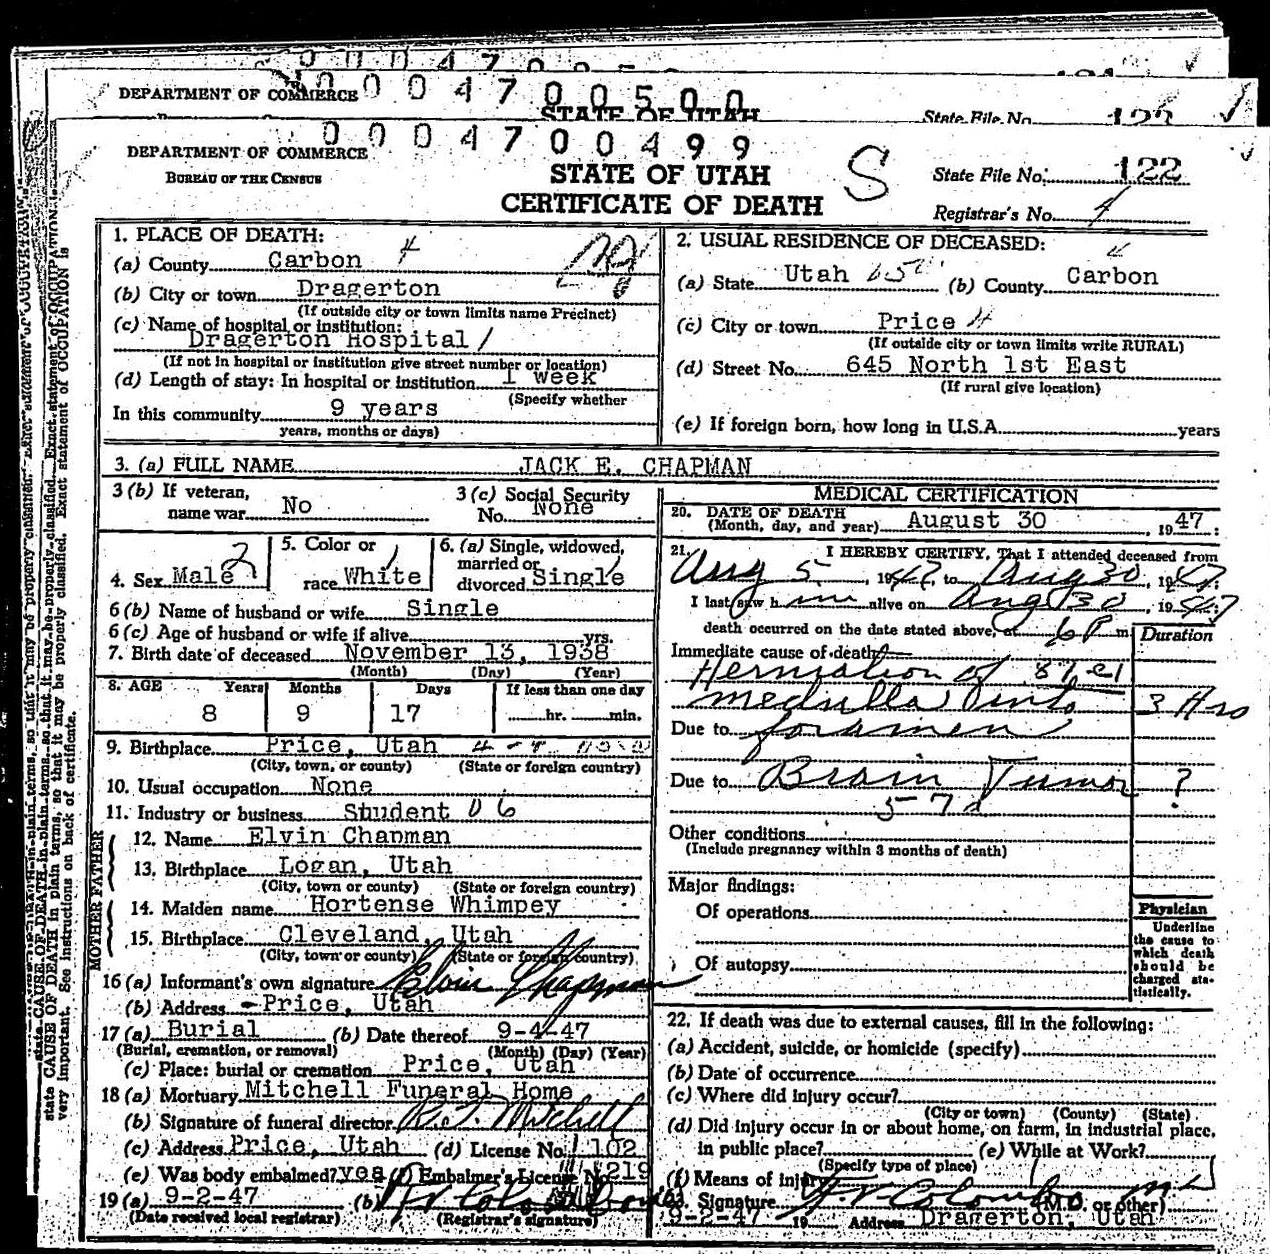 0004700500
DEPARTMENT OF COMMERCE
STATE OF UTAH
State File No.
0004700499
DEPARTMENT OF COMMERCE
BUREAU OF THE CENSUS
STATE OF UTAH
CERTIFICATE OF DEATH
S
State File No. 122
Registrar's No. 4
1. PLACE OF DEATH:
(a) County Carbon 4
(b) City or town Dragerton
(If outside city or town limits name Precinct)
(c) Name of hospital or institution:
Dragerton Hospital /
(If not in hospital or institution give street number or location)
(d) Length of stay: In hospital or institution 1 week
(Specify whether
In this community 9 years
years, months or days)
2. USUAL RESIDENCE OF DECEASED:
(a) State Utah (b) County Carbon
(c) City or town Price 4
(If outside city or town limits write RURAL)
(d) Street No. 645 North 1st East
(If rural give location)
(e) If foreign born, how long in U.S.A. years
3. (a) FULL NAME JACK E. CHAPMAN
3 (b) If veteran, name war No
3 (c) Social Security No. None
4. Sex Male 2
5. Color or race White /
6. (a) Single, widowed, married or divorced Single
6 (b) Name of husband or wife Single
6 (c) Age of husband or wife if alive yrs.
7. Birth date of deceased November 13, 1938
(Month) (Day) (Year)
8. AGE Years Months Days If less than one day
8 9 17 hr. min.
9. Birthplace Price, Utah
(City, town, or county) (State or foreign country)
10. Usual occupation None
11. Industry or business Student 06
FATHER
12. Name Elvin Chapman
13. Birthplace Logan, Utah
(City, town or county) (State or foreign country)
MOTHER
14. Maiden name Hortense Whimpey
15. Birthplace Cleveland, Utah
(City, town or county) (State or foreign country)
16 (a) Informant's own signature Elvin Chapman
(b) Address Price, Utah
17 (a) Burial (b) Date thereof 9-4-47
(Burial, cremation, or removal) (Month) (Day) (Year)
(c) Place: burial or cremation Price, Utah
18 (a) Mortuary Mitchell Funeral Home
(b) Signature of funeral director R. F. Mitchell
(c) Address Price, Utah (d) License No. 102
(e) Was body embalmed? yes (f) Embalmer's License No. 219
19 (a) 9-2-47 (b)
(Date received local registrar) (Registrar's signature)
MEDICAL CERTIFICATION
20. DATE OF DEATH
(Month, day, and year) August 30 1947
21. I HEREBY CERTIFY, That I attended deceased from
Aug 5, 1947, to Aug 30, 1947
I last saw him alive on Aug 30, 1947
death occurred on the date stated above, at 6 P m
Duration
Immediate cause of death
Herniation of
medulla into 3 Hrs
Due to foramen
Due to Brain Tumor ?
57
Other conditions
(Include pregnancy within 3 months of death)
Major findings:
Of operations
Of autopsy
Physician
Underline
the cause to
which death
should be
charged sta-
tistically.
22. If death was due to external causes, fill in the following:
(a) Accident, suicide, or homicide (specify)
(b) Date of occurrence
(c) Where did injury occur?
(City or town) (County) (State)
(d) Did injury occur in or about home, on farm, in industrial place,
in public place? (e) While at Work?
(Specify type of place)
(f) Means of injury
23. Signature F. V. Colombo M.D.
(M.D. or other)
9-2-47 19 Address Dragerton, Utah
state CAUSE OF DEATH in plain terms, so that it may be properly classified. Exact statement of OCCUPATION is
very important. See instructions on back of certificate.